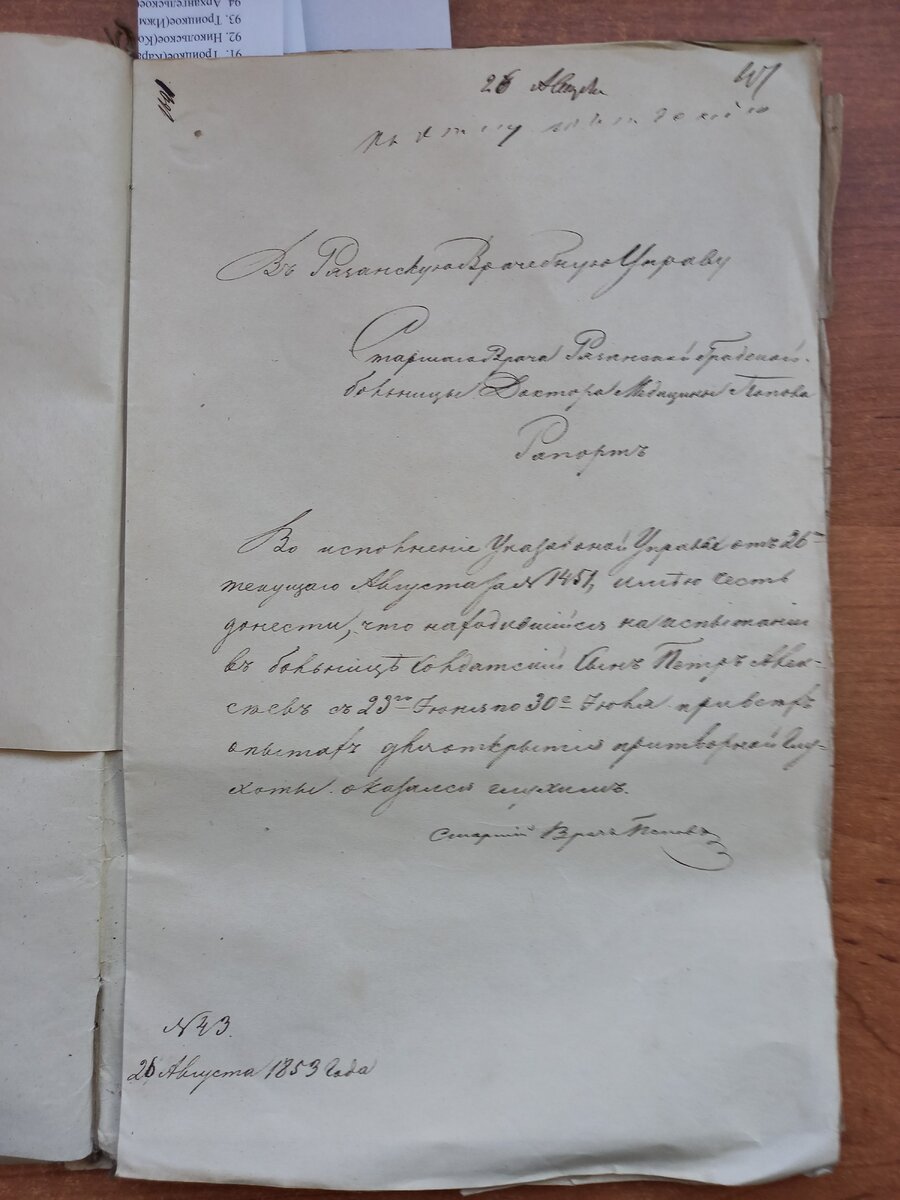 91. Троицкое(Кара
92. Никольское(Ко
93. Троицкое(Ижм
94. Архангельское
26 Августа
Въ Рязанскую Врачебную Управу
Старшаго Врача Рязанской Градской
больницы Доктора Медицины Попова
Рапортъ
Во исполненіе Указа оной Управы отъ 26го
текущаго Августа за № 1451, имѣю честь
донести, что находившійся на испытаніи
въ больницѣ Солдатскій сынъ Петръ Алек-
сѣевъ съ 23го Іюня по 30е Іюля при всѣхъ
опытахъ для открытія притворной глу-
хоты оказался глухимъ.
Старшій Врачь Поповъ
№ 43.
26 Августа 1853 Года